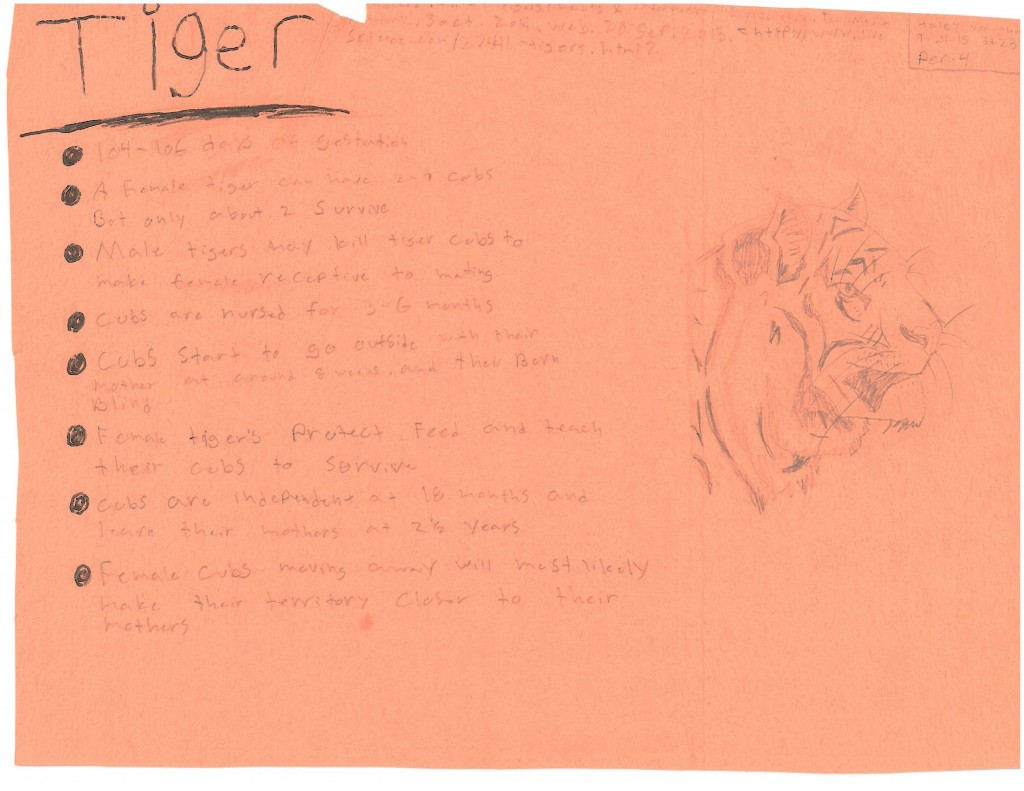 Tiger
3 oct. 2014. web. 20 Sep. 2015. <http://www.live
Science.com/27441-tigers.html>.
Per. 4
104-106 days of gestation
A Female tiger can have 2-7 cubs
But only about 2 Survive
Male tigers may kill tiger cubs to
make female receptive to mating
Cubs are nursed for 3-6 months
Cubs Start to go outside with their
mother at around 8 weeks. and their Born
Blind
Female tiger's Protect Feed and teach
their cubs to Servive
Cubs are independent at 18 months and
leave their mothers at 2½ years
Female cubs moving away will most likely
make their territory closer to their
mothers